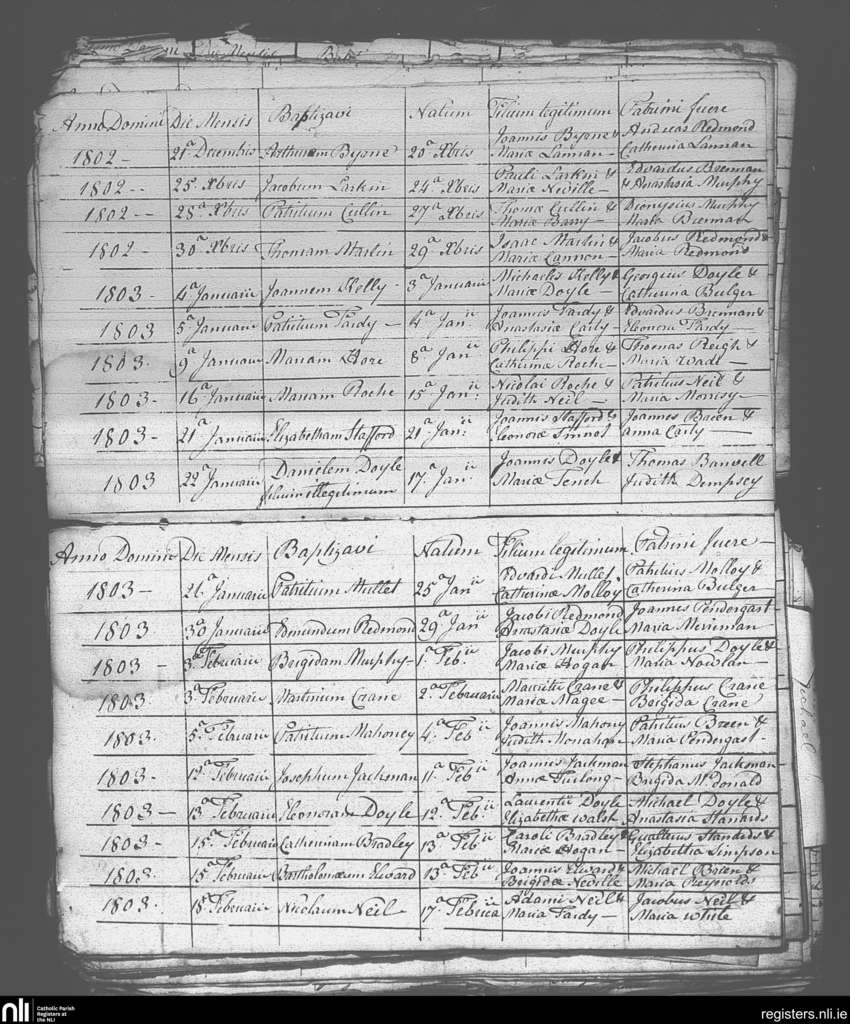 Anno Domini Die Mensis Baptizavi Natum Filium legitimum Patrini fuere
1802 - 21ª Decembris Arthurum Byrne 20ª Xbris Joannis Byrne & Mariæ Lannan - Andreas Redmond Catherina Lannan
1802 - 25ª Xbris Jacobum Larkin 24ª Xbris Pauli Larkin & Mariæ Neville - Edvardus Brennan & Anastasia Murphy
1802 - - 28ª Xbris Patritium Cullin 27ª Xbris Thomæ Cullin & Mariæ Barry - Dionysius Murphy Marta Brennan
1802 - 30ª Xbris Thomam Martin 29ª Xbris Isaac Martin & Mariæ Lannon - Jacobus Redmond & Maria Redmond
1803 - 4ª Januarii Joannem Kelly - 3ª Januarii Michaelis Kelly & Mariæ Doyle - Georgius Doyle & Catherina Bulger
1803 5ª Januarii Patritium Tardy - 4ª Janii Joannis Tardy & Anastasiæ Carty - Edvardus Brennan & Elenora Tardy -
1803 - 9ª Januarii Mariam Hore 8ª Janii Philippi Hore & Catherinæ Roche - Thomas Reigh & Maria Wade -
1803 - 16ª Januarii Mariam Roche 15ª Janii Nicolai Roche & Judith Neil - Patritius Neil & Maria Morrisy -
1803 - 21ª Januarii Elizabetham Stafford 21ª Janii Joannis Stafford & Eleonoræ Sinnot Joannes Bacen & Anna Carty -
1803 22ª Januarii Danielem Doyle filium illegitimum 17ª Janii Joannis Doyle & Mariæ Tench Thomas Banvell Judith Dempsey
Anno Domini Die Mensis Baptizavi Natum Filium legitimum Patrini fuere -
1803 - 26ª Januarii Patritium Mullet 25ª Janii Edvardi Mullet Catherinæ Molloy Patritius Molloy & Catherina Bulger
1803 30ª Januarii Edmundum Redmond 29ª Janii Jacobi Redmond Anastasiæ Doyle Joannes Pendergast Maria Merriman
1803 - 3ª Februarii Brigidam Murphy - 1ª Febii Jacobi Murphy Mariæ Hogan Philippus Doyle & Maria Nowlan -
1803 - 3ª Februarii Martinum Crane 2ª Februarii Mauritii Crane & Mariæ Magee - Philippus Crane Brigida Crane
1803. 5ª Februarii Patritium Mahoney 4ª Febii Joannis Mahony Judith Monahan Patritius Breen & Maria Pendergast -
1803 - 12ª Februarii Josephum Jackman 11ª Febii Joannis Jackman Annæ Furlong - Stephanus Jackman - Brigida McDonald
1803 - 13ª Februarii Eleonoram Doyle 12ª Febii Laurentii Doyle Elizabethæ Walsh Michael Doyle & Anastasia
1803 - 15ª Februarii Catherinam Bradley 13ª Febii Caroli Bradley & Mariæ Hogan - Gualterus & Elizabetha Simpson
1803 - 15ª Februarii Bartholomæum Elward 13ª Febii Joannis Elward & Brigidæ Neville Michael Brien & Maria Reynolds
1803 - 18ª Februarii Nicolaum Neil 17ª Adami Neil & Maria Tardy - Jacobus Neil & Maria White
nli Catholic Parish Registers at the NLI
registers.nli.ie